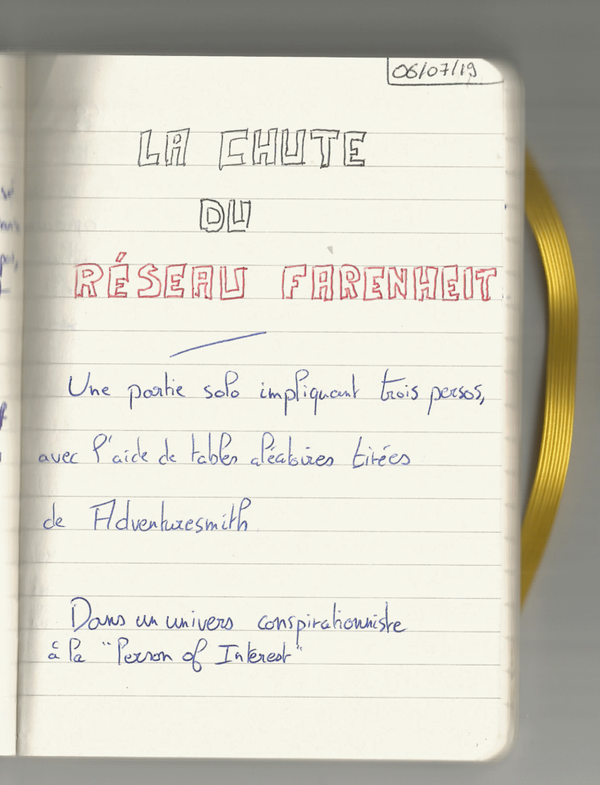 06/07/19
LA CHUTE
DU
RÉSEAU FARENHEIT
Une partie solo impliquant trois persos,
avec l'aide de tables aléatoires tirées
de Adventuresmith
Dans un univers conspirationniste
à la "Person of Interest"